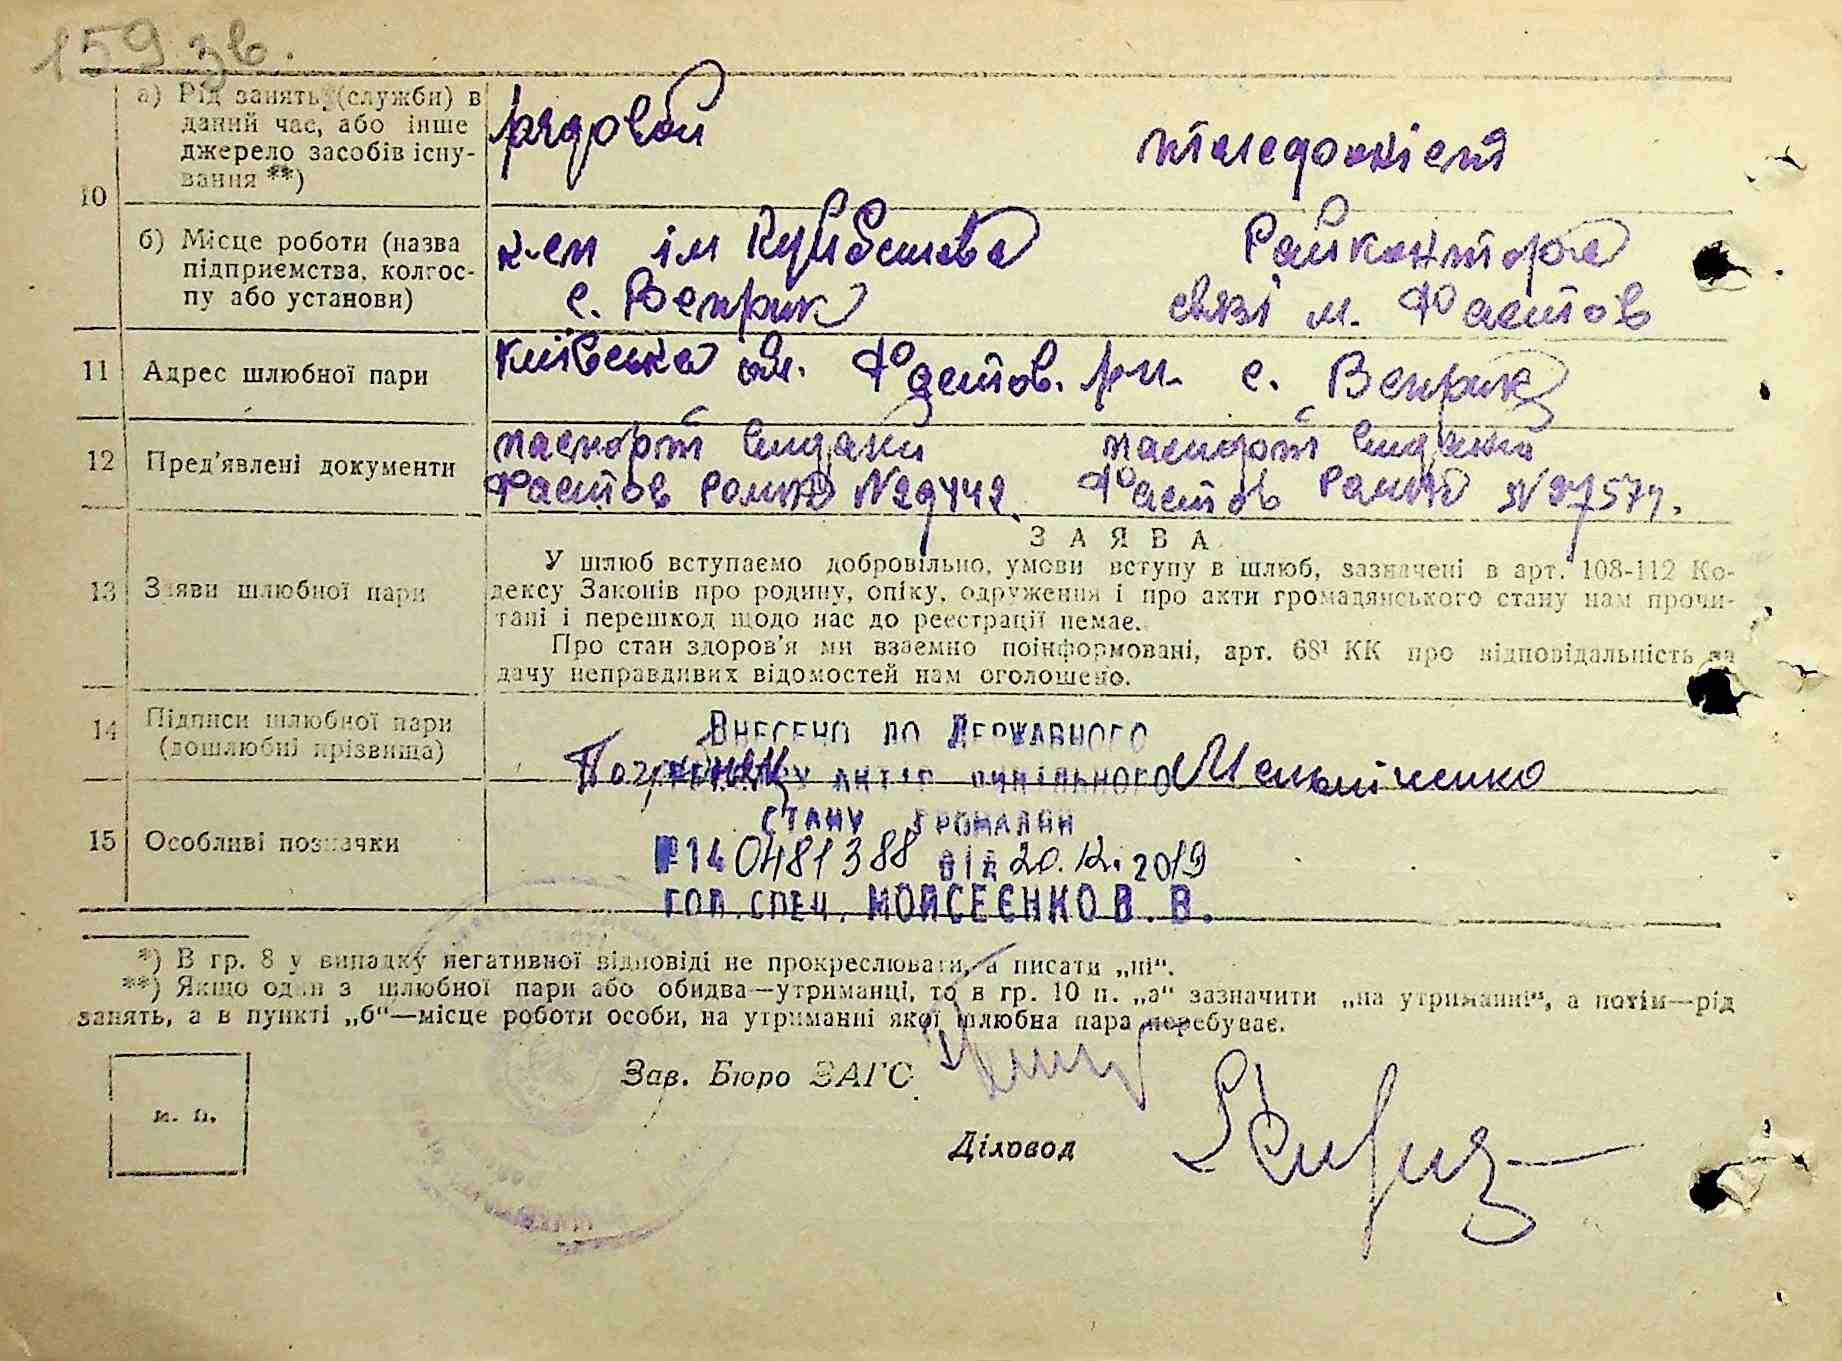 159 зв.
10
а) Рід занять (служби) в
даний час, або інше
джерело засобів існу-
вання **)
рядовой
телефоніст
б) Місце роботи (назва
підприємства, колгос-
пу або установи)
к-сп ім Куйбешева
с. Веприк
Райконтора
связі м. Фастов
11
Адрес шлюбної пари
Київська обл. Фастов. р-н. с. Веприк
12
Пред'явлені документи
паспорт видани
Фастов
паспорт видани
Фастов
13
Заяви шлюбної пари
ЗАЯВА
У шлюб вступаємо добровільно, умови вступу в шлюб, зазначені в арт. 108-112 Ко-
дексу Законів про родину, опіку, одруження і про акти громадянського стану нам прочи-
тані і перешкод щодо нас до реєстрації немає.
Про стан здоров'я ми взаємно поінформовані, арт. 68¹ КК про відповідальність за
дачу неправдивих відомостей нам оголошено.
14
Підписи шлюбної пари
(дошлюбні прізвища)
Внесено до Державного
реєстру актів цивільного
стану громадян
Мельніченко
15
Особливі позначки
№14 0481388 від 20.12.2019
гол. спец. Мойсеєнко В. В.
*) В гр. 8 у випадку негативної відповіді не прокреслювати, а писати „ні“.
**) Якщо один з шлюбної пари або обидва—утриманці, то в гр. 10 п. „а“ зазначити „на утриманні“, а потім—рід
занять, а в пункті „б“—місце роботи особи, на утриманні якої шлюбна пара перебуває.
м. п.
Зав. Бюро ЗАГС
Діловод